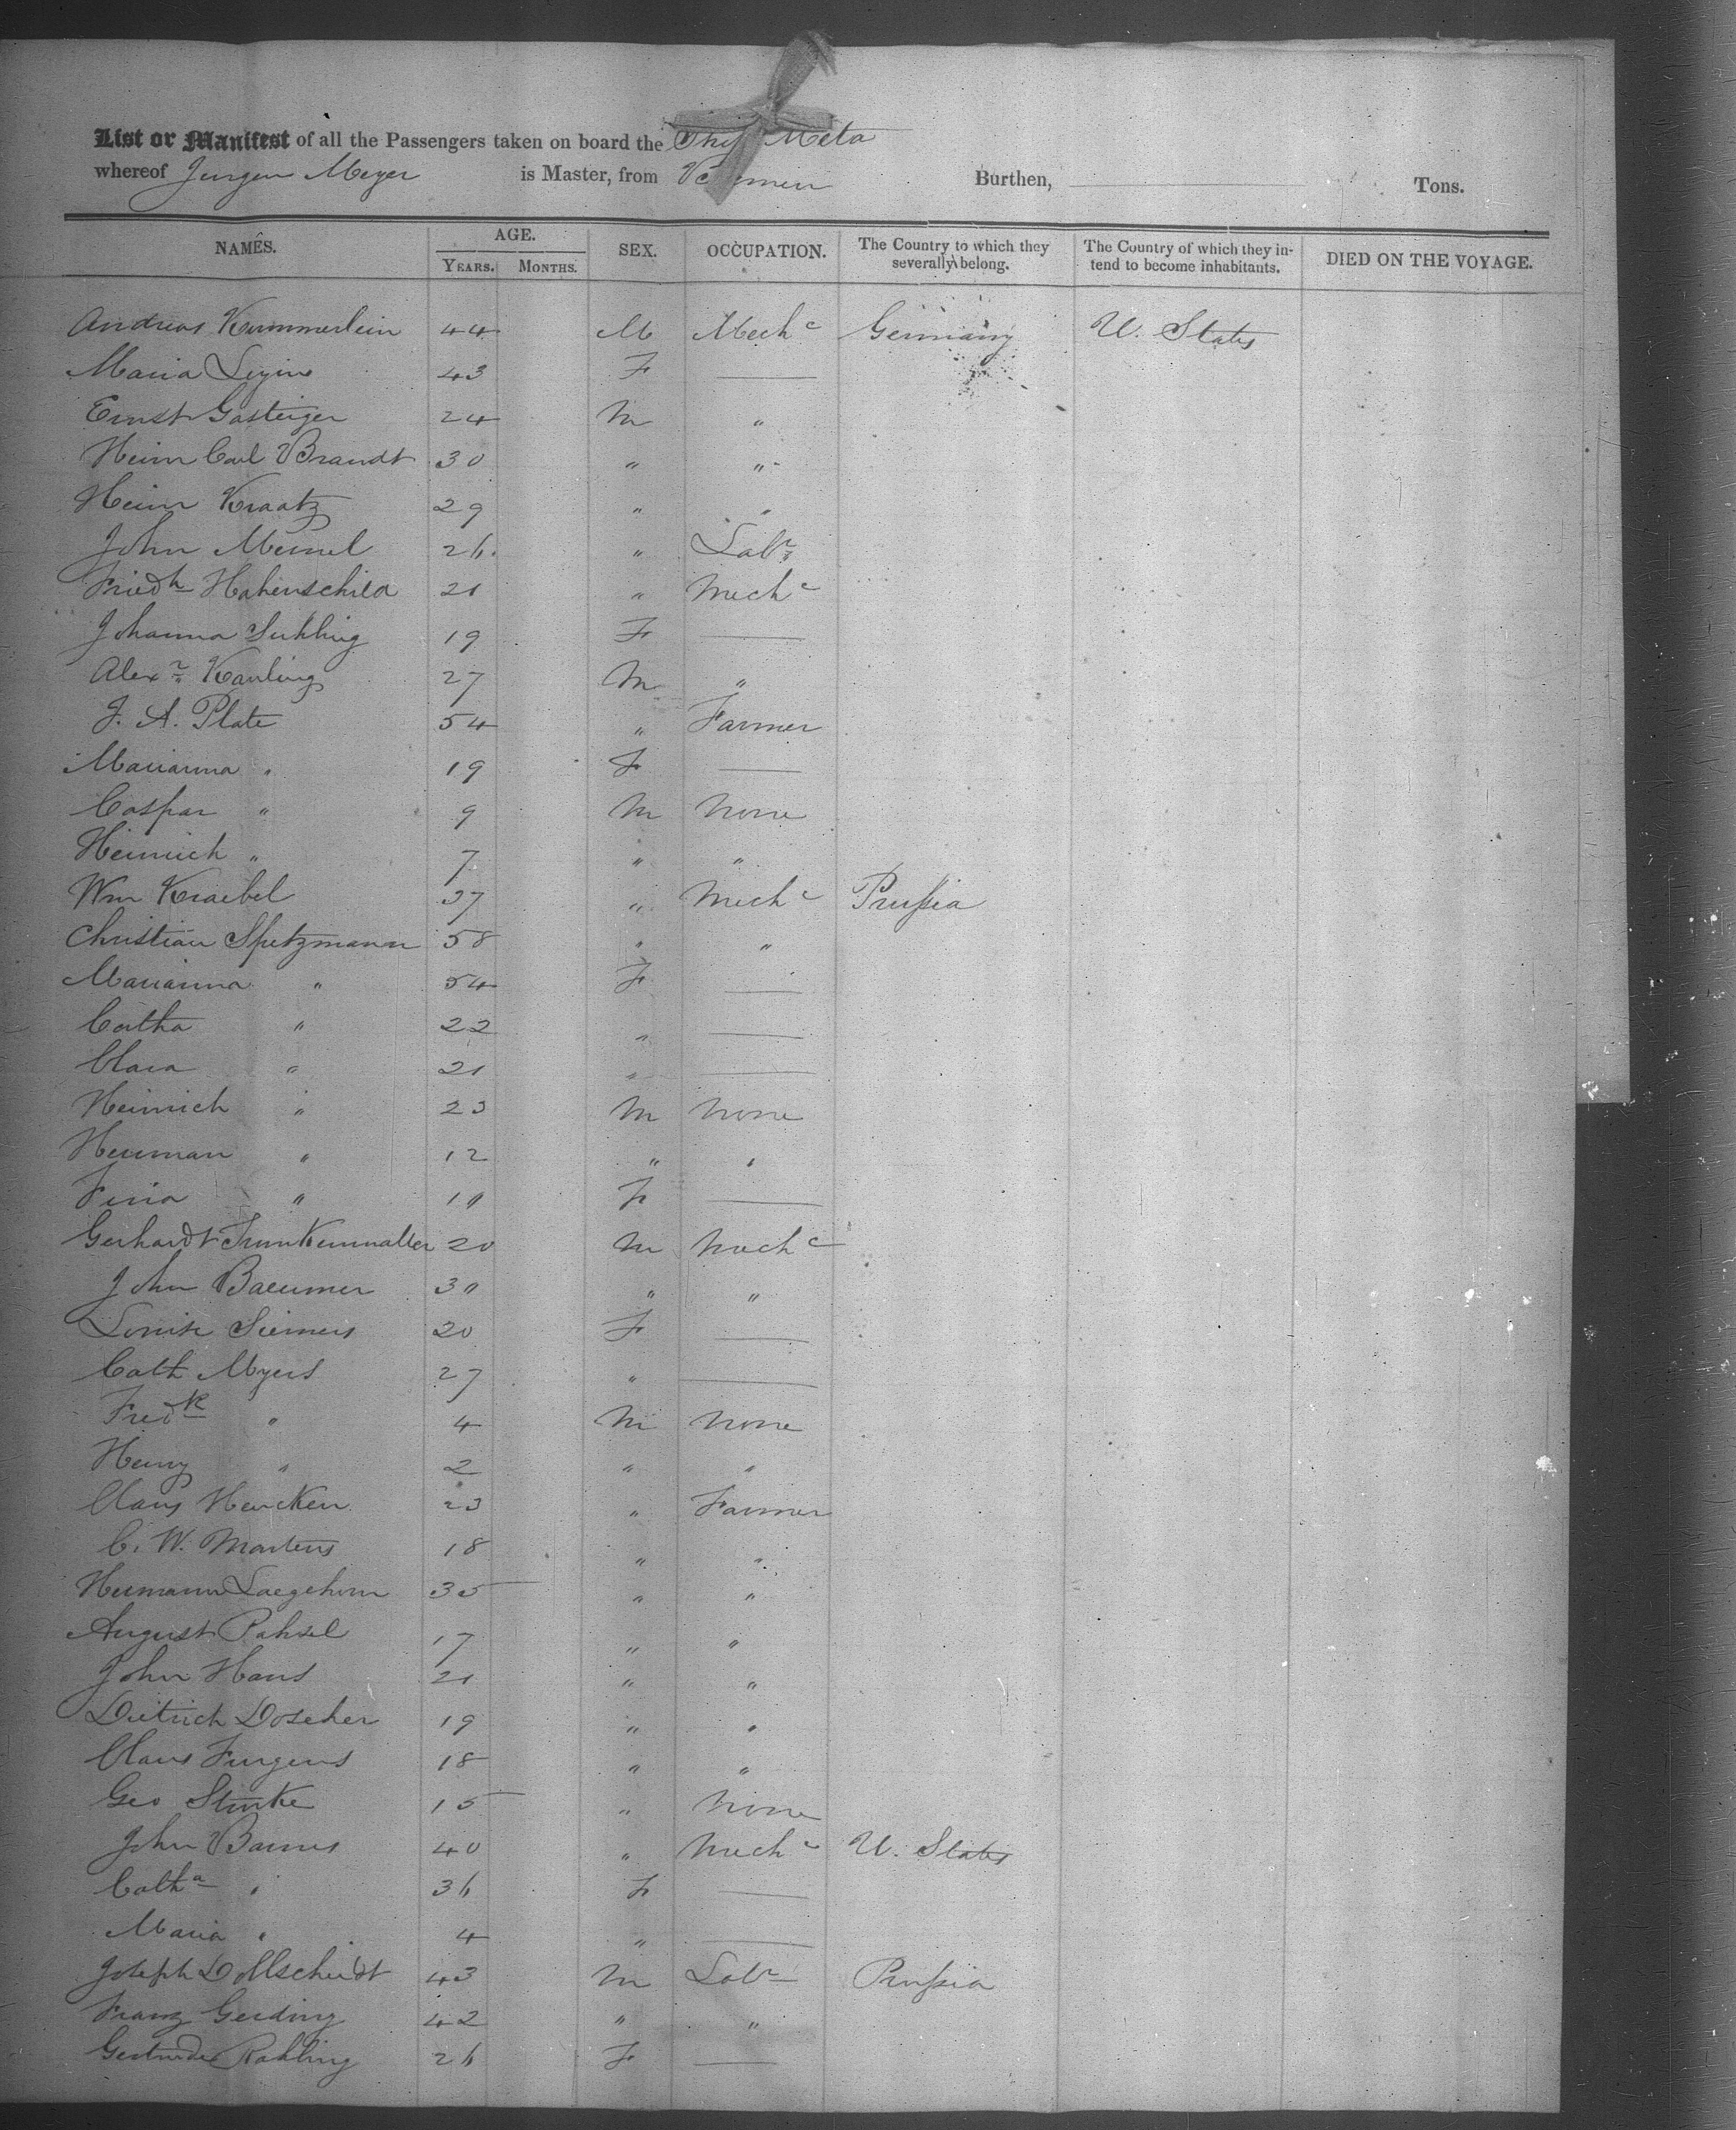 List or Manifest of all the Passengers taken on board the Ship Meta
whereof Jurgen Meyer is Master, from Bremen Burthen, Tons.
NAMES. AGE. SEX. OCCUPATION. The Country to which they severally belong. The Country of which they intend to become inhabitants. DIED ON THE VOYAGE.
YEARS. MONTHS.
Andreas Kummerlein 44 M Mechc Germany U. States
Maria 43 F —
Ernst Gasteiger 24 M "
Heinr Carl Brandt 30 " "
Heinr Kraatz 29 " "
John Meinel 26 " Labr
Friedh Hakenschild 21 " Mechc
Johanna 19 F —
Alexr Kanling 27 M "
J. A. Plate 54 " Farmer
Marianna " 19 F —
Caspar " 9 M None
Heinrich " 7 " "
Wm Kraebel 37 " Mechc Prussia
Christian Spetzmann 58 " "
Marianna " 54 F —
Catha " 22 " —
Clara " 21 " —
Heinrich " 23 M None
Herman " 12 " "
" F —
Gerhardt 20 M Mechc
John Baeumer 30 " "
Louise Siemers 20 F —
Cath Myers 27 " —
Fredk " 4 M None
Henry " 2 " "
Claus Hencken 23 " Farmer
C. W. Martens 18 " "
Hermann Laegehorn 35 " "
August 17 " "
John Hans 21 " "
Dietrich Doscher 19 " "
Claus Jurgens 18 " "
Geo 15 " None
John Barnes 40 " Mechc U. States
Catha " 36 F —
Maria " 4 " —
Joseph Dollscheidt 43 M Labr Prussia
Franz Gerding 42 " "
Gertrude Rohling 26 F —